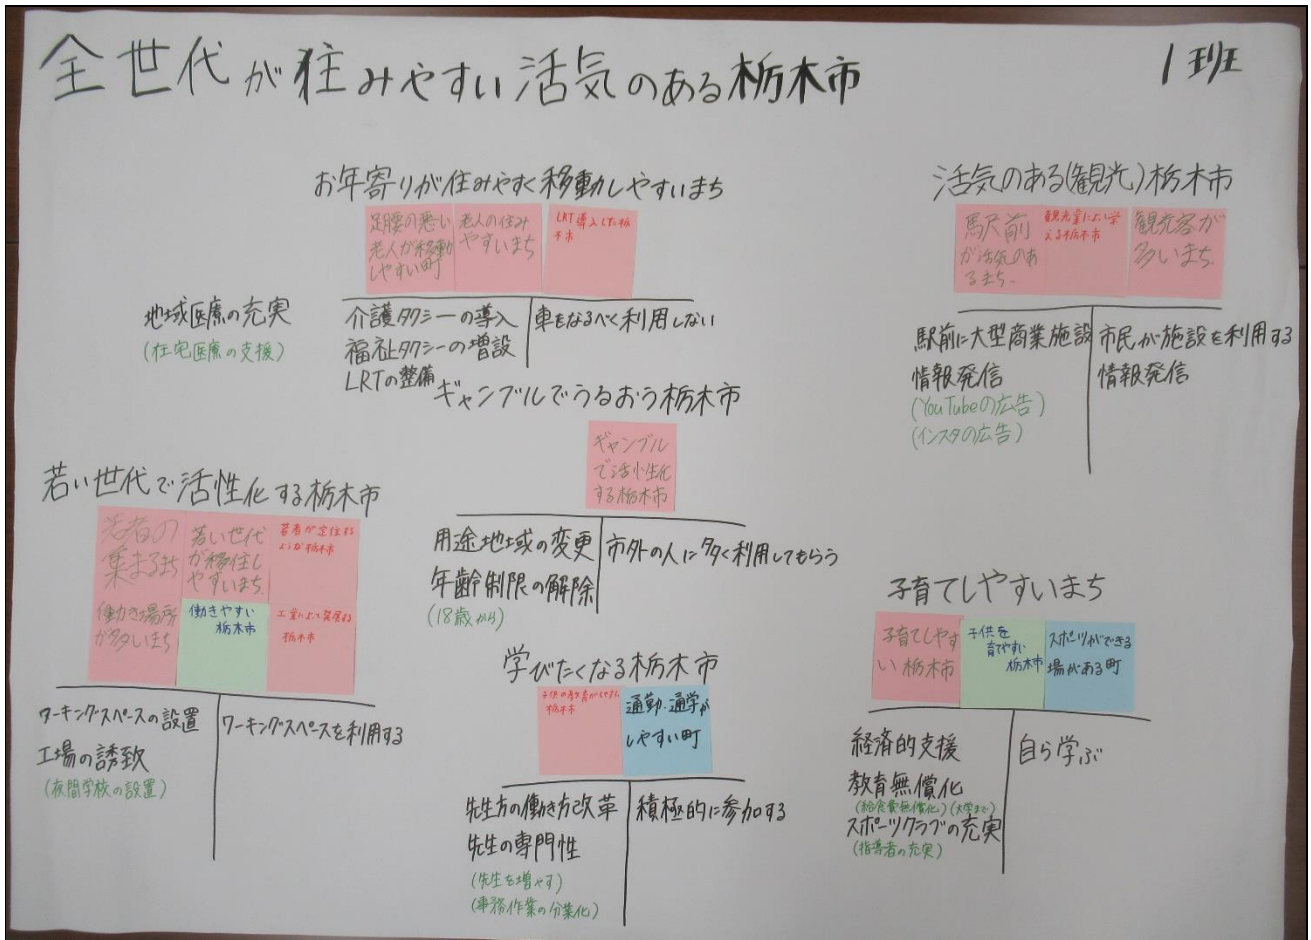 全世代が住みやすい活気のある栃木市
1班
お年寄りが住みやすく移動しやすいまち
足腰の悪い
老人が移動
しやすい町
老人の住み
やすいまち
LRT導入した栃
木市
地域医療の充実
(在宅医療の支援)
介護タクシーの導入
福祉タクシーの増設
LRTの整備
車をなるべく利用しない
活気のある(観光)栃木市
駅前
が活気のあ
るまち.
観光業によい栄
える栃木市
観光客が
多いまち.
駅前に大型商業施設
情報発信
(YouTubeの広告)
(インスタの広告)
市民が施設を利用する
情報発信
ギャンブルでうるおう栃木市
ギャンブル
で活性化
する栃木市
用途地域の変更
年齢制限の解除
(18歳から)
市外の人に多く利用してもらう
若い世代で活性化する栃木市
若者の
集まるまち
若い世代
が移住し
やすいまち.
若者が定住する
ような栃木市
働き場所
が多いまち
働きやすい
栃木市
工業によって発展する
栃木市
ワーキングスペースの設置
工場の誘致
(夜間学校の設置)
ワーキングスペースを利用する
学びたくなる栃木市
子供の教育がしやすい
栃木市
通勤・通学が
しやすい町
先生方の働き方改革
先生の専門性
(先生を増やす)
(事務作業の分業化)
積極的に参加する
子育てしやすいまち
子育てしやす
い栃木市
子供を
育てやすい
栃木市
スポーツができる
場がある町
経済的支援
教育無償化
(給食費無償化)(大学まで)
スポーツクラブの充実
(指導者の充実)
自ら学ぶ